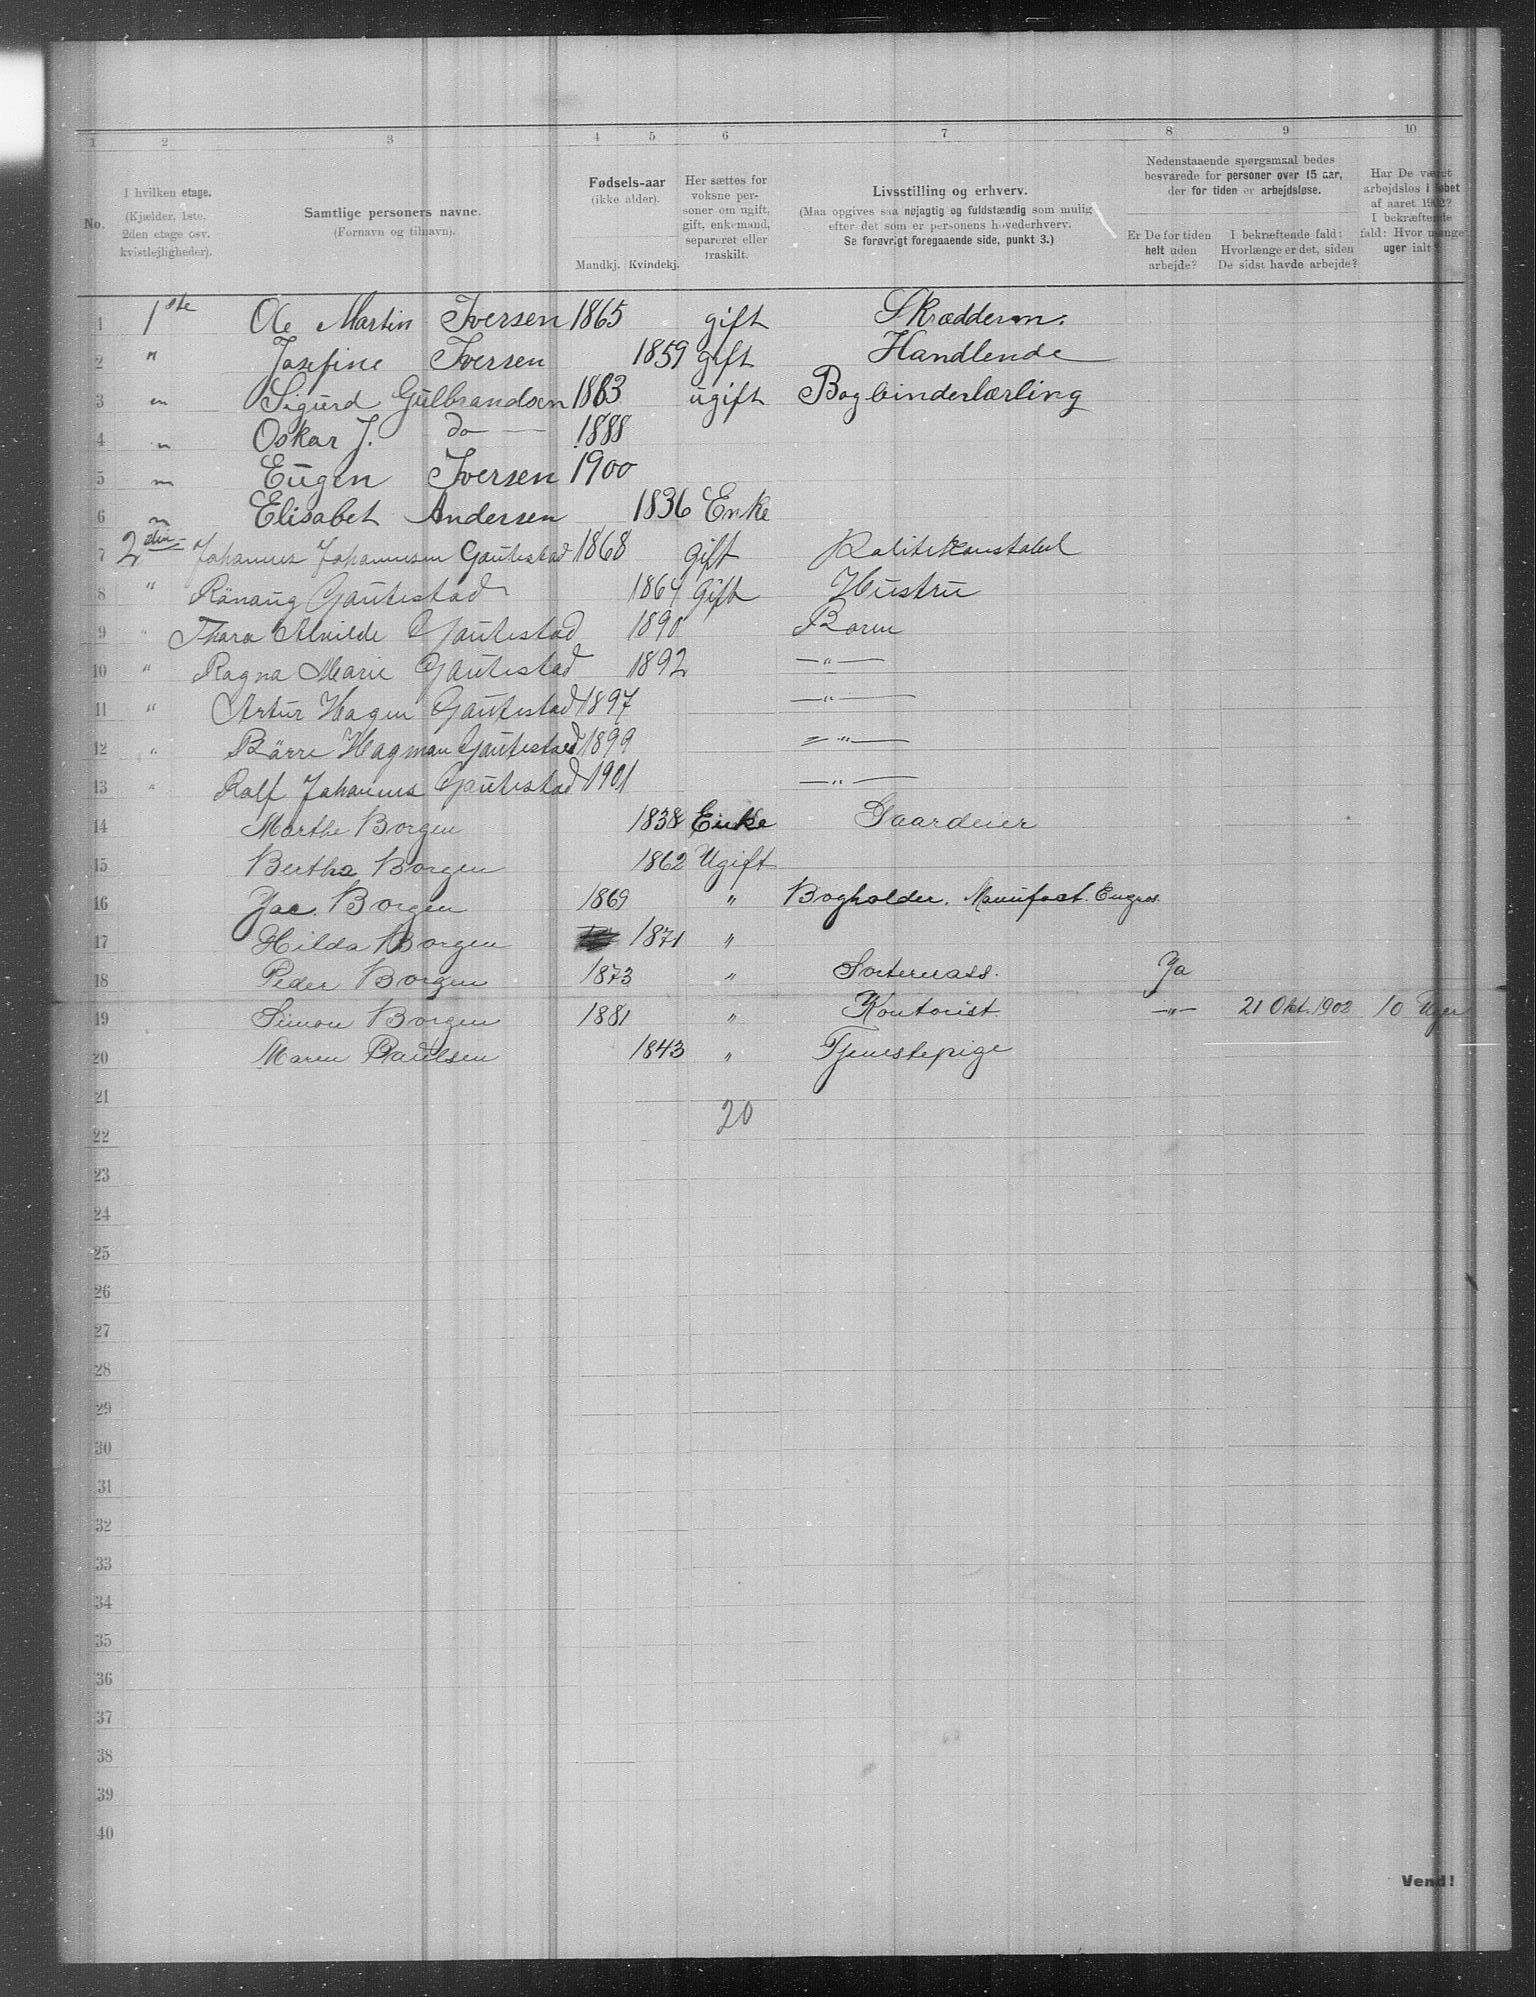 1 2 3 4 5 6 7 8 9 10
No.
I hvilken etage.
(Kjælder, 1ste,
2den etage osv.
kvistlejligheder).
Samtlige personers navne.
(Fornavn og tilnavn).
Fødsels-aar
(ikke alder).
Mandkj. Kvindekj.
Her sættes for
voksne per-
soner om ugift,
gift, enkemand,
separeret eller
fraskilt.
Livsstilling og erhverv.
(Maa opgives saa nøjagtig og fuldstændig som mulig
efter det som er personens hovederhverv.
Se forøvrigt foregaaende side, punkt 3.)
Nedenstaaende spørgsmaal bedes
besvarede for personer over 15 aar,
der for tiden er arbejdsløse.
Er De for tiden
helt uden
arbejde?
I bekræftende fald:
Hvorlænge er det, siden
De sidst havde arbejde?
Har De været
arbejdsløs i løbet
af aaret 1902?
I bekræftende
fald: Hvor mange
uger ialt?
1 1ste Ole Martin Iversen 1865 gift Skrædderm.
2 " Josefine Iversen 1859 gift Handlende
3 " Sigurd Gulbrandsen 1883 ugift Bogbinderlærling
4 " Oskar J. do 1888
5 " Eugen Iversen 1900
6 " Elisabet Andersen 1836 Enke
7 2den Johannes Johannesen Gautestad 1868 gift Politikonstabel
8 " Rönaug Gautestad 1864 Gift Hustru
9 " Thora Alvilde Gautestad 1890 Børn
10 " Ragna Marie Gautestad 1892 — " —
11 " Artur Hagen Gautestad 1897 — " —
12 " Börre Hagman Gautestad 1899 — " —
13 " Rolf Johannes Gautestad 1901 — " —
14 Marthe Borgen 1838 Enke Gaardeier
15 Bertha Borgen 1862 Ugift
16 Jac. Borgen 1869 " Bogholder. Manufact. Engros.
17 Hilda Borgen 1871 "
18 Peder Borgen 1873 " Ja
19 Simon Borgen 1881 " Kontorist — " — 21 Okt. 1902 10 Uger
20 Maren Paulsen 1843 " Tjenestepige
21
20
22
23
24
25
26
27
28
29
30
31
32
33
34
35
36
37
38
39
40
Vend!